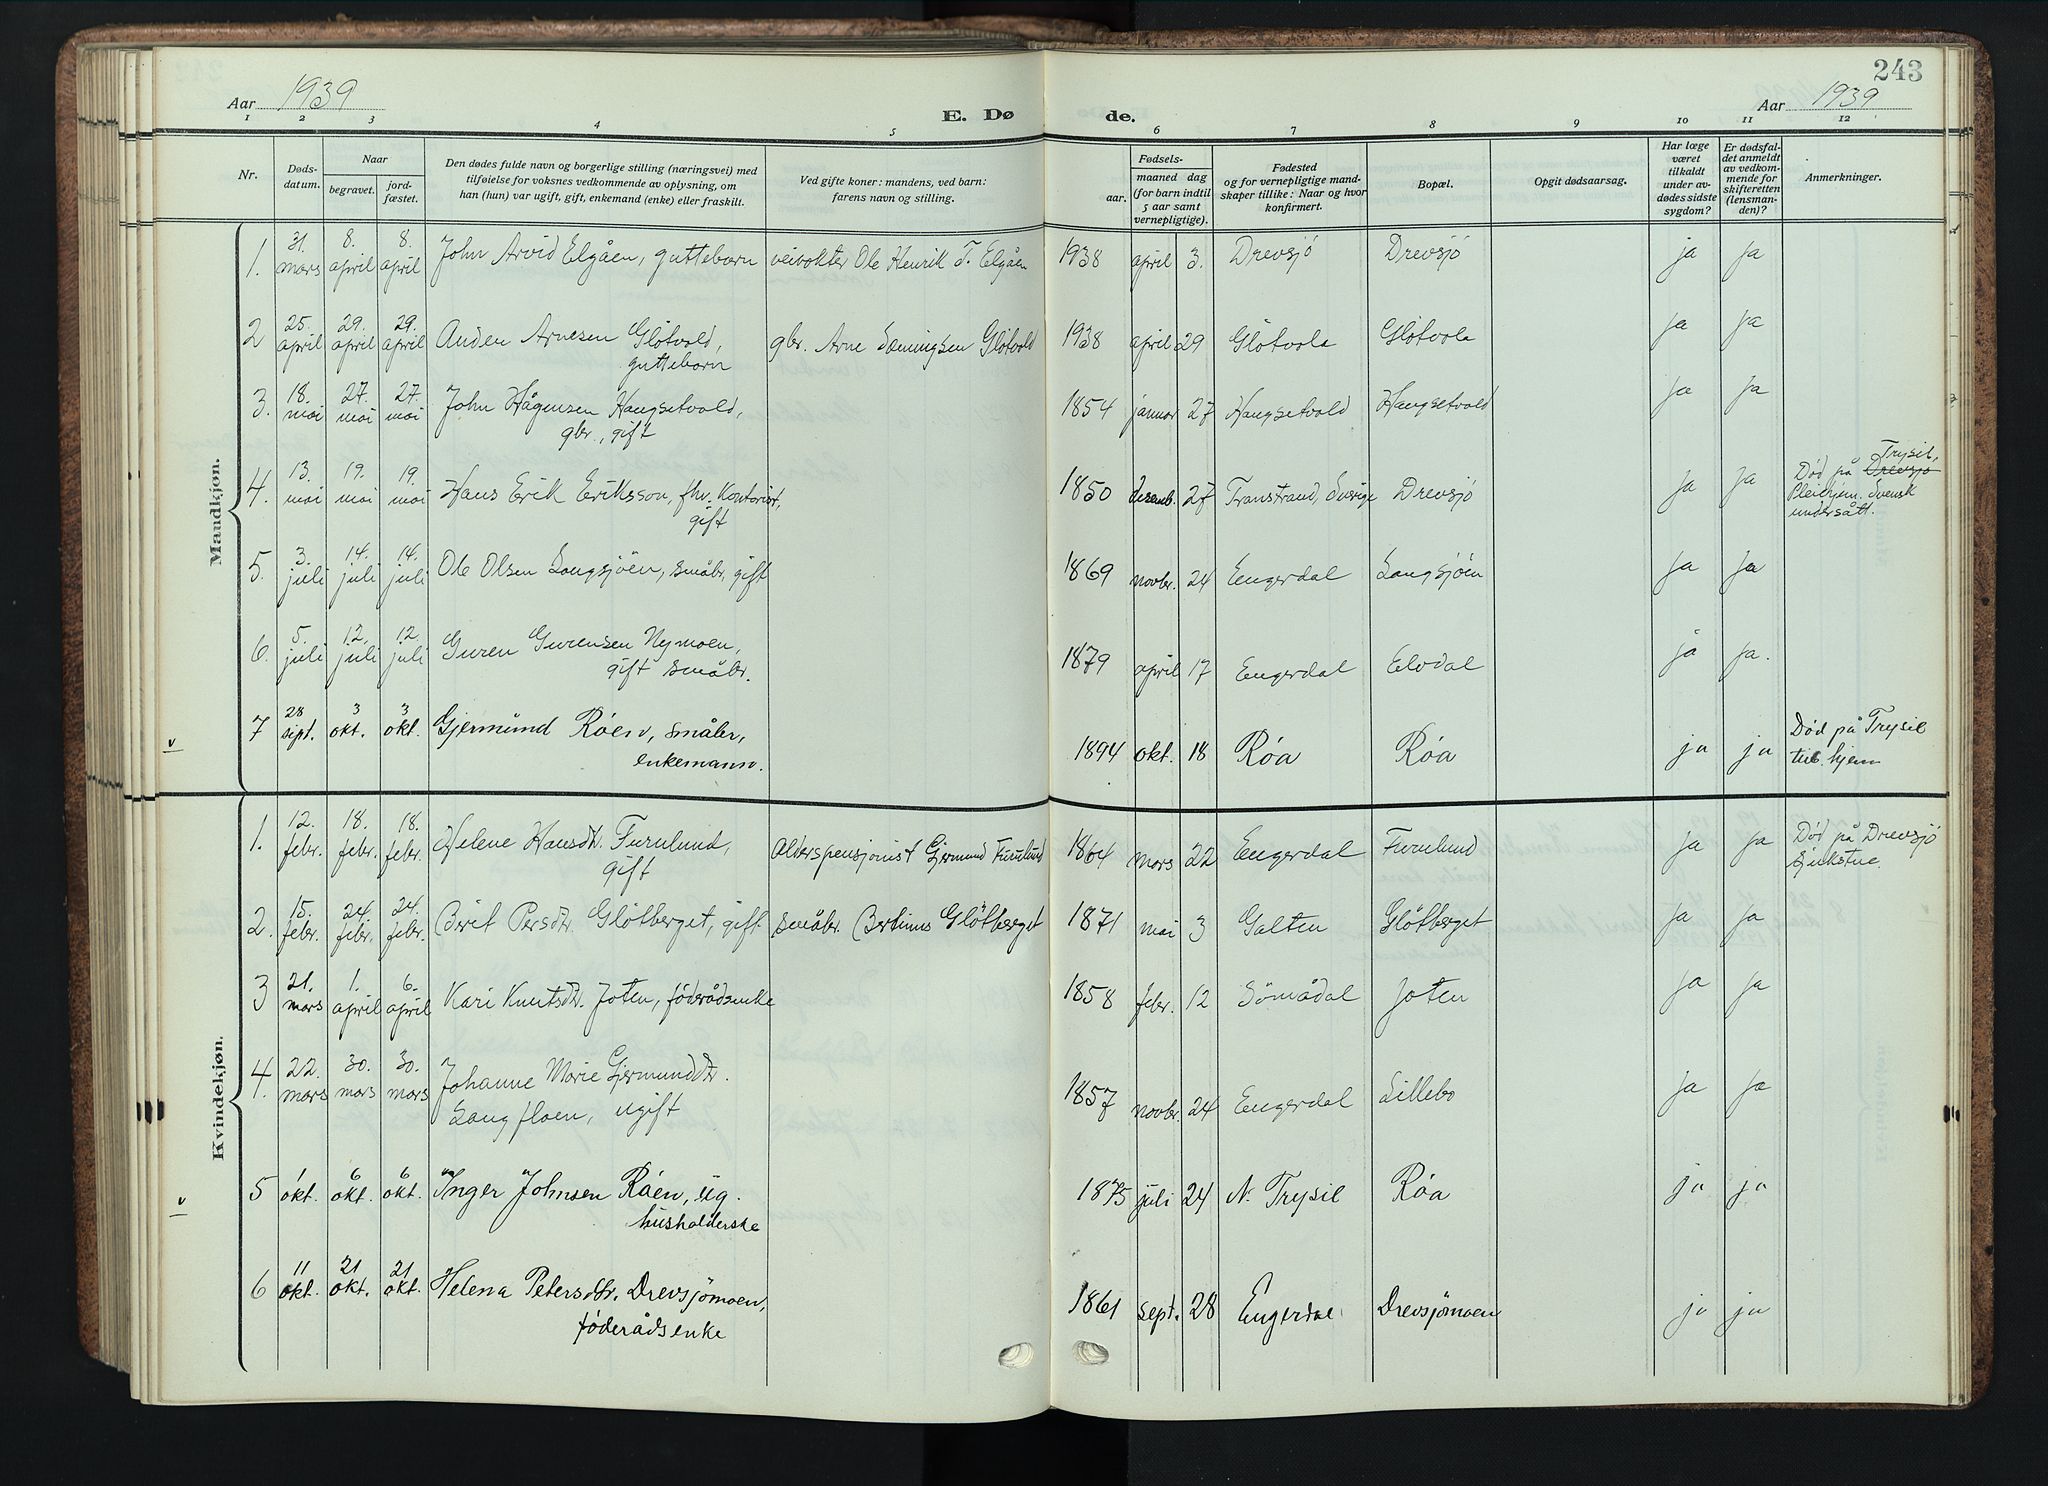 243
Aar 1939
E. Dø
de.
Aar 1939
1 2 3 4 5 6 7 8 9 10 11 12
Nr.
Døds-
datum.
Naar
begravet.
jord-
fæstet.
Den dødes fulde navn og borgerlige stilling (næringsvei) med
tilføielse for voksnes vedkommende av oplysning, om
han (hun) var ugift, gift, enkemand (enke) eller fraskilt.
Ved gifte koner: mandens, ved barn:
farens navn og stilling.
Fødsels-
aar. maaned dag
(for barn indtil
5 aar samt
vernepligtige).
Fødested
og for vernepligtige mand-
skaper tillike: Naar og hvor
konfirmert.
Bopæl.
Opgit dødsaarsag.
Har læge
været
tilkaldt
under av-
dødes sidste
sygdom?
Er dødsfal-
det anmeldt
av vedkom-
mende for
skifteretten
(lensman-
den)?
Anmerkninger.
Maudkjøn.
1. 31. mars 8. april 8. april John Arvid Elgåen, guttebarn veivokter Ole Henrik T. Elgåen 1938 april 3. Drevsjö Drevsjö ja ja
2 25. april 29. april 29. april Anden Arnesen Glötvold,
guttebarn gbr. Arne Sæmingsen Glötvold 1938 april 29 Glötvola Glötvola ja ja
3. 18. mai 27. mai 27. mai John Hågensen Haugsetvold,
gbr., gift 1854 januar 27 Haugsetvold Haugsetvold ja ja
4. 13. mai 19. mai 19. mai Hans Erik Eriksson, fhv. Kontorist,
gift 1850 desemb. 27 Transtrand, Sverige Drevsjö ja ja Død på Drevsjö Trysil,
Pleiehjem. Svensk
undersått.
5. 3. juli 14. juli 14. juli Ole Olsen Langsjöen, småbr, gift 1869 novbr. 24 Engerdal Langsjöen ja ja
6. 5. juli 12. juli 12. juli Guren Gurensen Nymoen,
gift småbr. 1879 april 17 Engerdal Elvdal ja ja.
v 7 28 sept. 3 okt. 3 okt. Gjermund Røen, småbr,
enkemann. 1894 okt. 18 Røa Røa ja ja Død på Trysil
tub. hjem
Kvindekjøn.
1. 12. febr. 18. febr. 18. febr. Helene Hansdtr. Furulund,
gift Alderspensjonist Gjermund Furulund 1864 mars 22 Engerdal Furulund ja ja Død på Drevsjö
Sjukstue
2. 15. febr. 24. febr. 24. febr. Berit Persdtr. Glötberget, gift. småbr. Bertinus Glötberget 1871 mai 3 Galten Glötberget ja ja
3 21. mars 1. april 6. april Kari Knutsdtr. Joten, föderådsenke 1858 febr. 12 Sömådal Joten ja ja
4. 22. mars 30. mars 30. mars Johanne Marie Gjermunddtr.
Langfloen, ugift 1857 novbr. 24 Engerdal Lillebo ja ja
v 5 1 okt. 6 okt. 6 okt. Inger Johnsen Røen, ug.
husholderske 1875 juli 24 N. Trysil Røa ja ja
6 11 okt. 21 okt. 21 okt. Helena Petersdtr. Drevsjömoen,
föderådsenke 1861 sept. 28 Engerdal Drevsjömoen ja ja